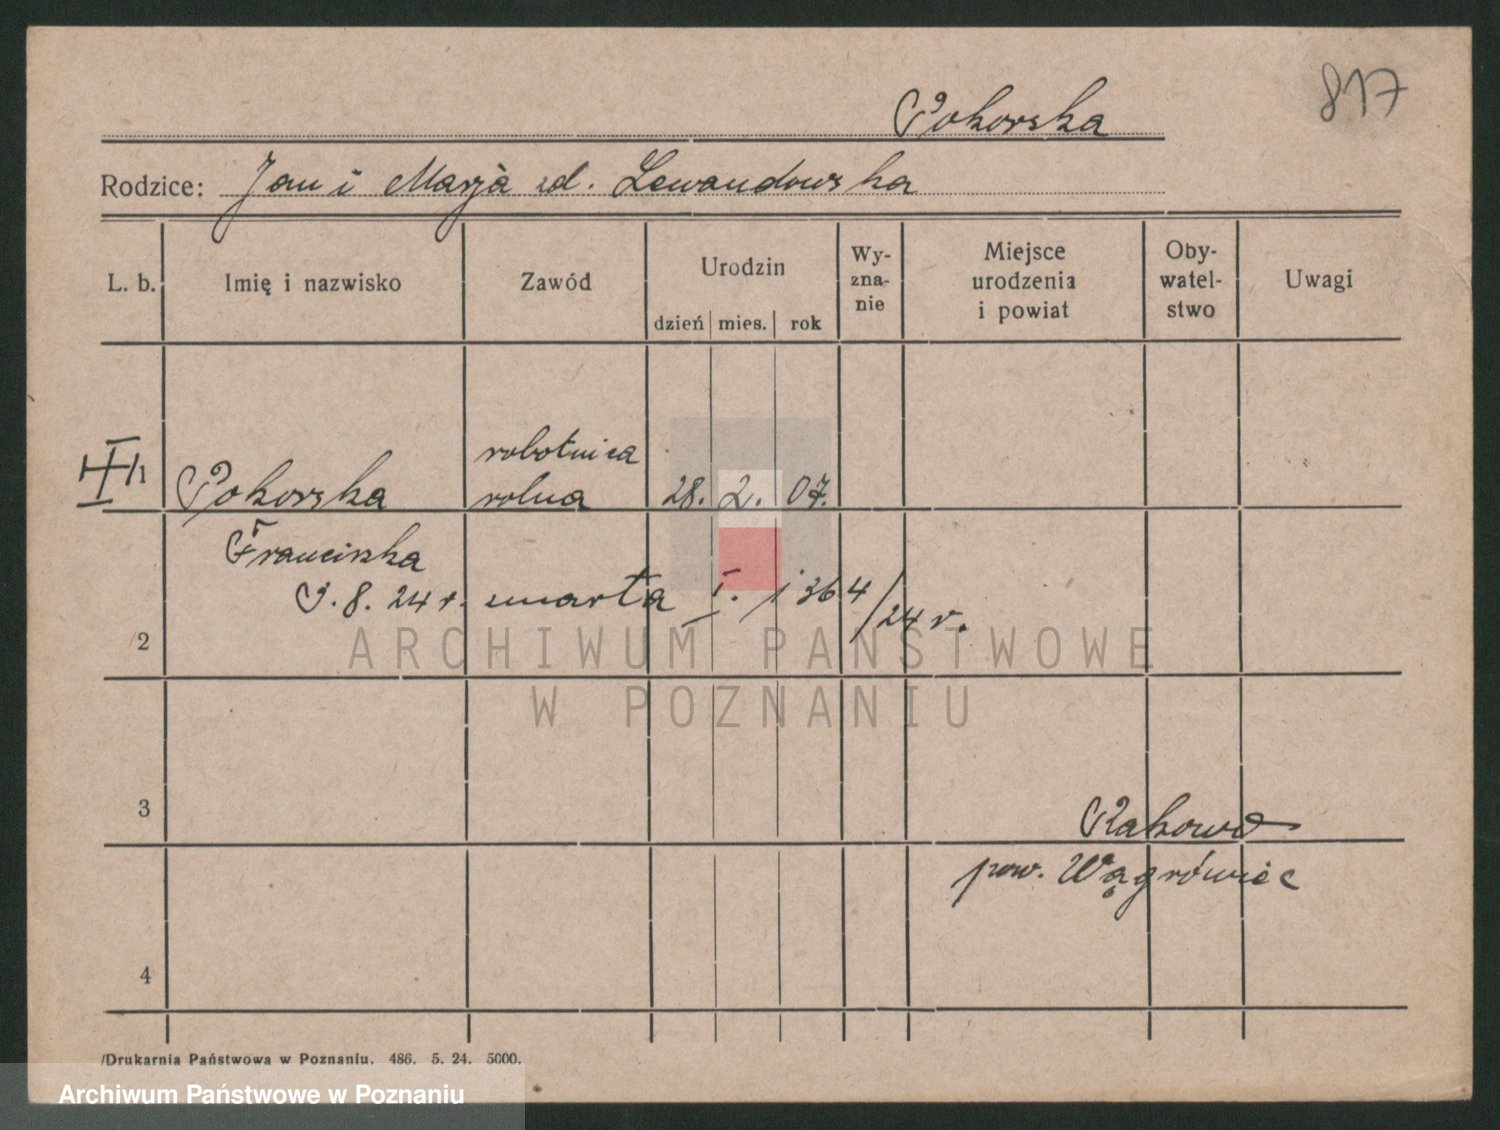 817
Pokorska
Rodzice: Jan i Marja zd. Lewandowska
L. b. Imię i nazwisko Zawód Urodzin dzień mies. rok Wy-zna-nie Miejsce urodzenia i powiat Oby-watel-stwo Uwagi
1 Pokorska robotnica rolna 28. 2. 07.
Franciszka
9. 8. 24 r. zmarła I. 1364/24 r.
2
ARCHIWUM PAŃSTWOWE
W POZNANIU
3 Rakowo
pow. Wągrówiec
4
/Drukarnia Państwowa w Poznaniu. 486. 5. 24. 5000.
Archiwum Państwowe w Poznaniu